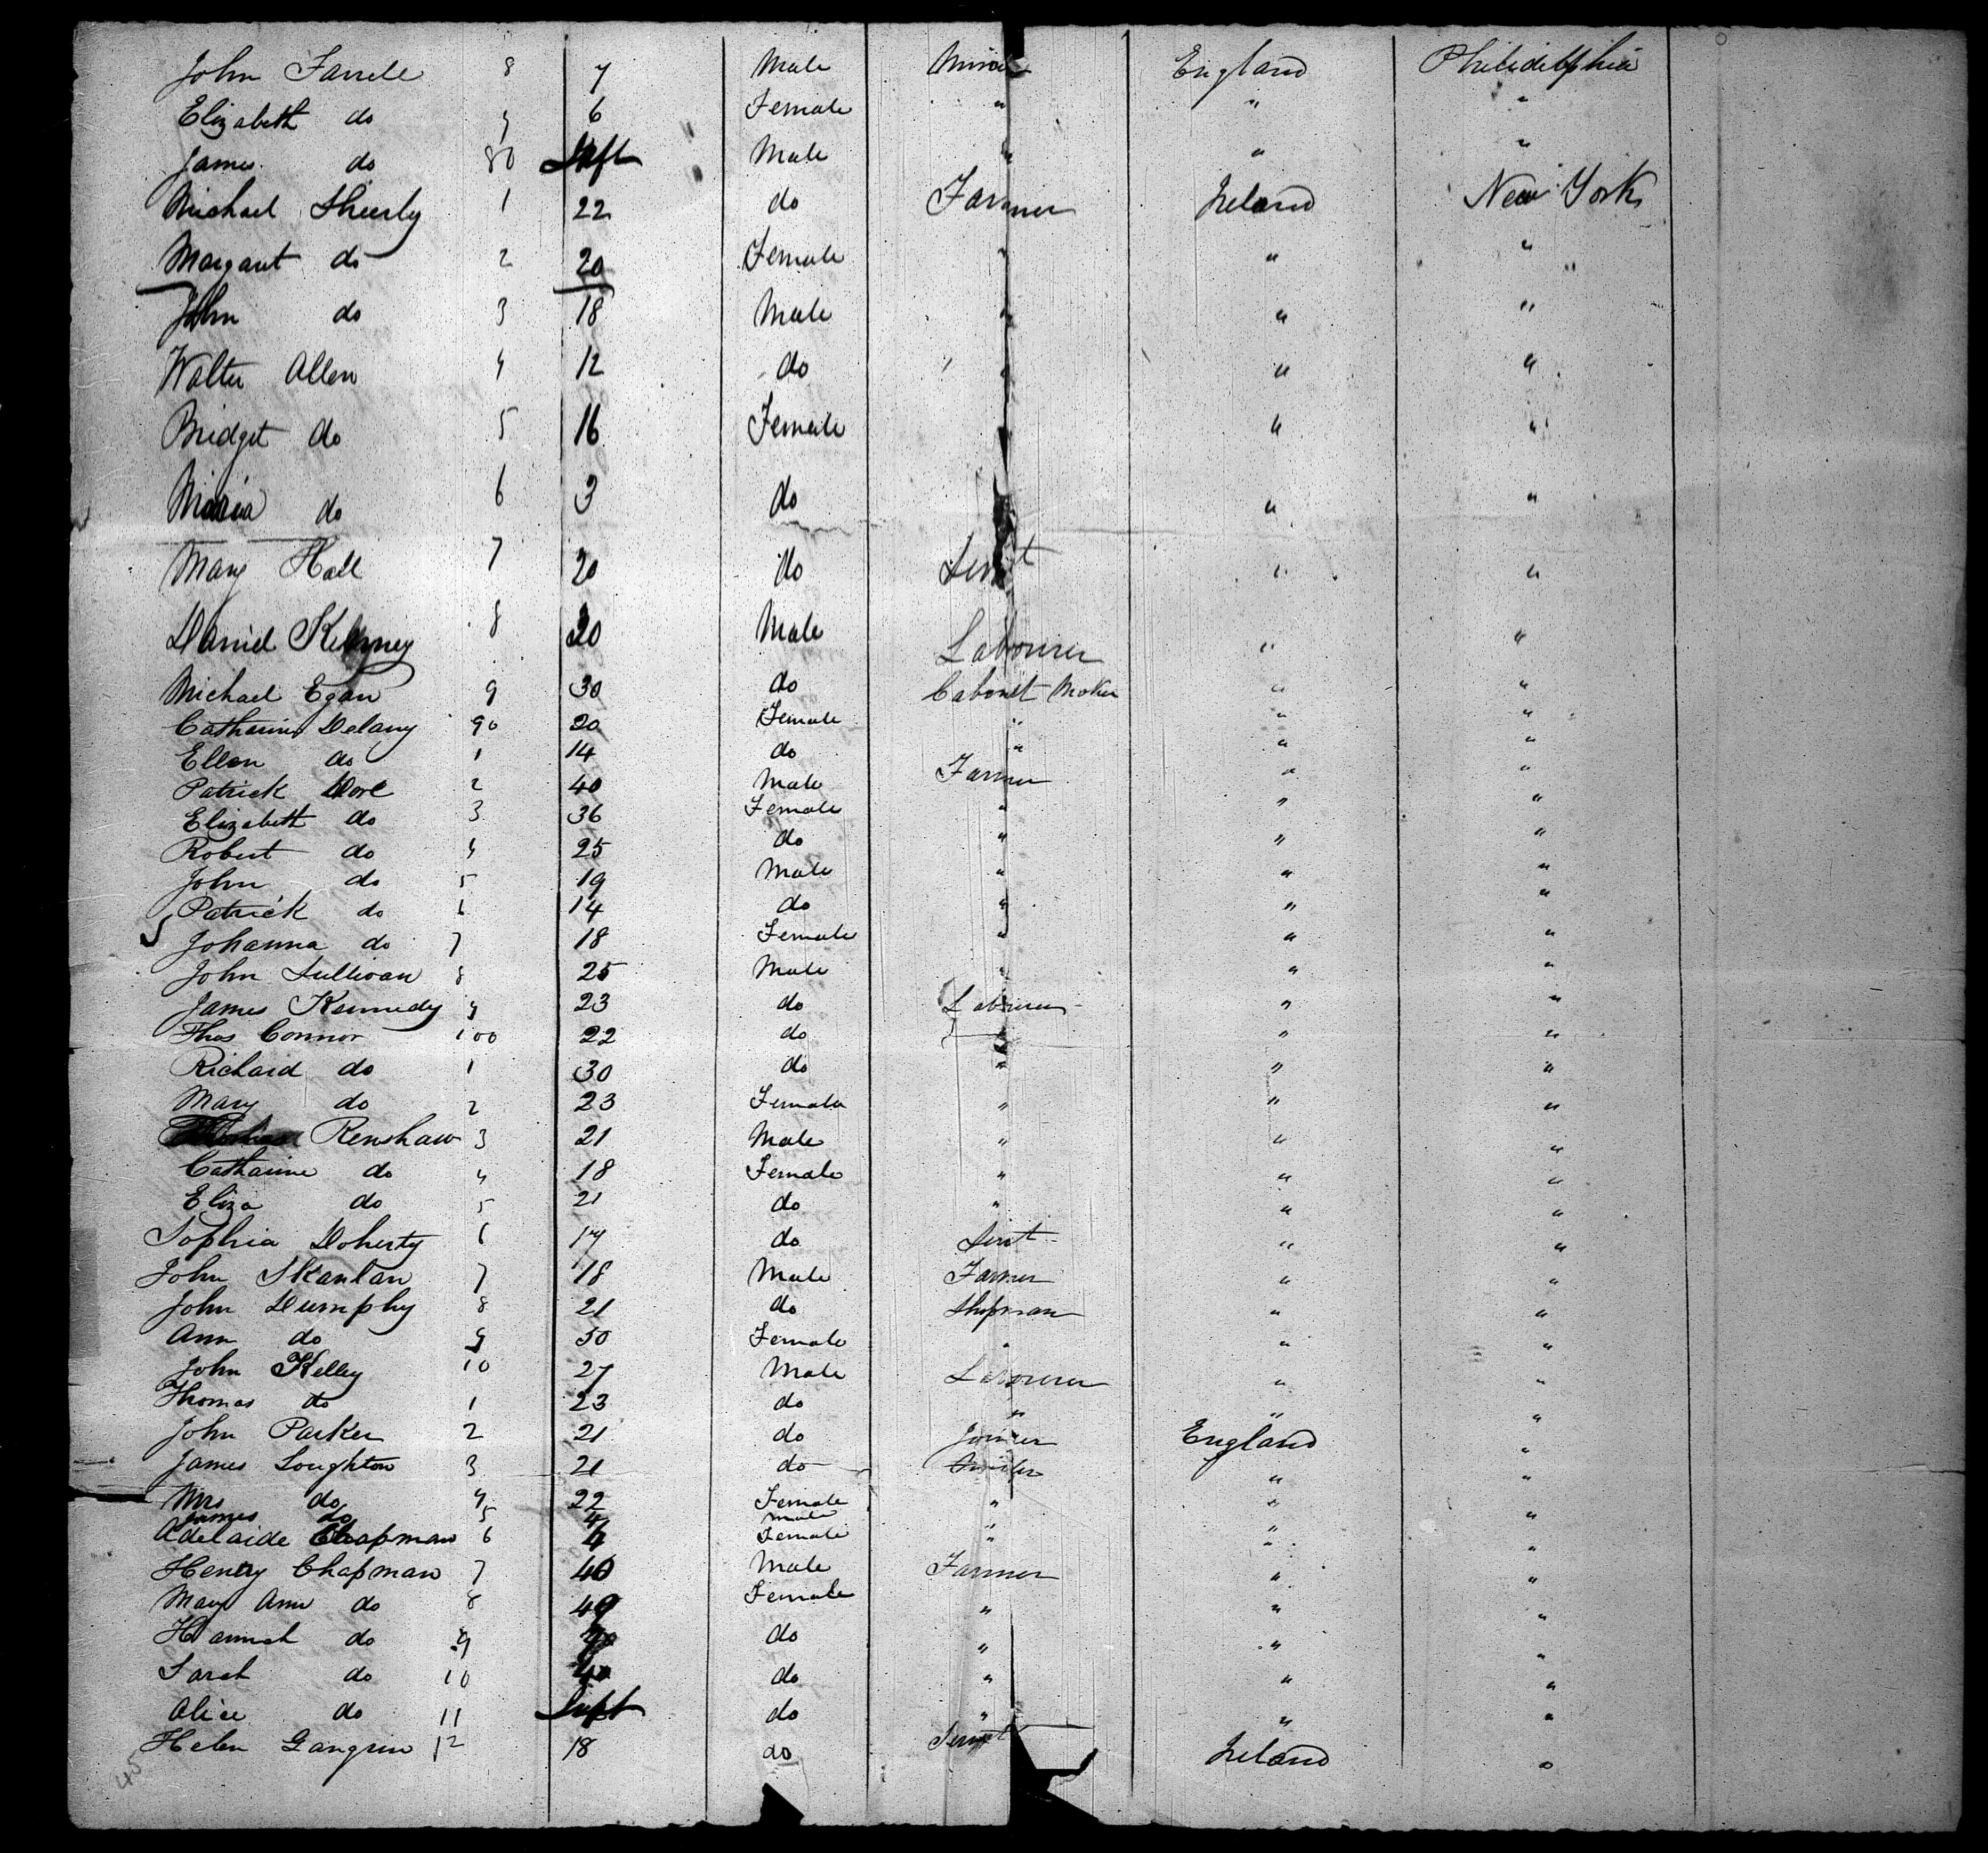 John Farrele 8 7 Male Miner England Philidelphia
Elizabeth do 9 6 Female " " "
James do 80 Inft Male " " "
Michael Sheerly 1 22 do Farmer Ireland New York
Margaret do 2 20 Female " " "
John do 3 18 Male " " "
Walter Allen 4 12 do " " "
Bridget do 5 16 Female " "
Maria do 6 3 do " "
Mary Hall 7 20 do Servt " "
Daniel 8 20 Male Labourer " "
Michael Egan 9 30 do Cabonet Maker " "
Catharine Delany 90 20 Female " " "
Ellen do 1 14 do " " "
Patrick Dore 2 40 Male Farmer " "
Elizabeth do 3 36 Female " " "
Robert do 4 25 do " " "
John do 5 19 Male " " "
Patrick do 6 14 do " " "
Johanna do 7 18 Female " " "
John Sullivan 8 25 Male " " "
James Kennedy 9 23 do Labourer " "
Thos Connor 100 22 do " " "
Richard do 1 30 do " " "
Mary do 2 23 Female " " "
Renshaw 3 21 Male " " "
Catharine do 4 18 Female " " "
Eliza do 5 21 do " " "
Sophia Doherty 6 17 do Servt " "
John Skanlan 7 18 Male Farmer " "
John Dumphy 8 21 do Shopman " "
Ann do 9 50 Female " " "
John Kelley 10 27 Male Labourer " "
Thomas do 1 23 do " " "
John Parker 2 21 do Joiner England "
James Loughton 3 21 do " "
Mrs do 4 22 Female " " "
James do 5 4 Male " " "
Adelaide Chapman 6 Female " " "
Henry Chapman 7 40 Male Farmer " "
Mary Ann do 8 40 Female " " "
Hannah do 9 do " " "
Sarah do 10 do " " "
Alice do 11 Inft do " " "
Helen Gangrin 12 18 do Servt Ireland "
45